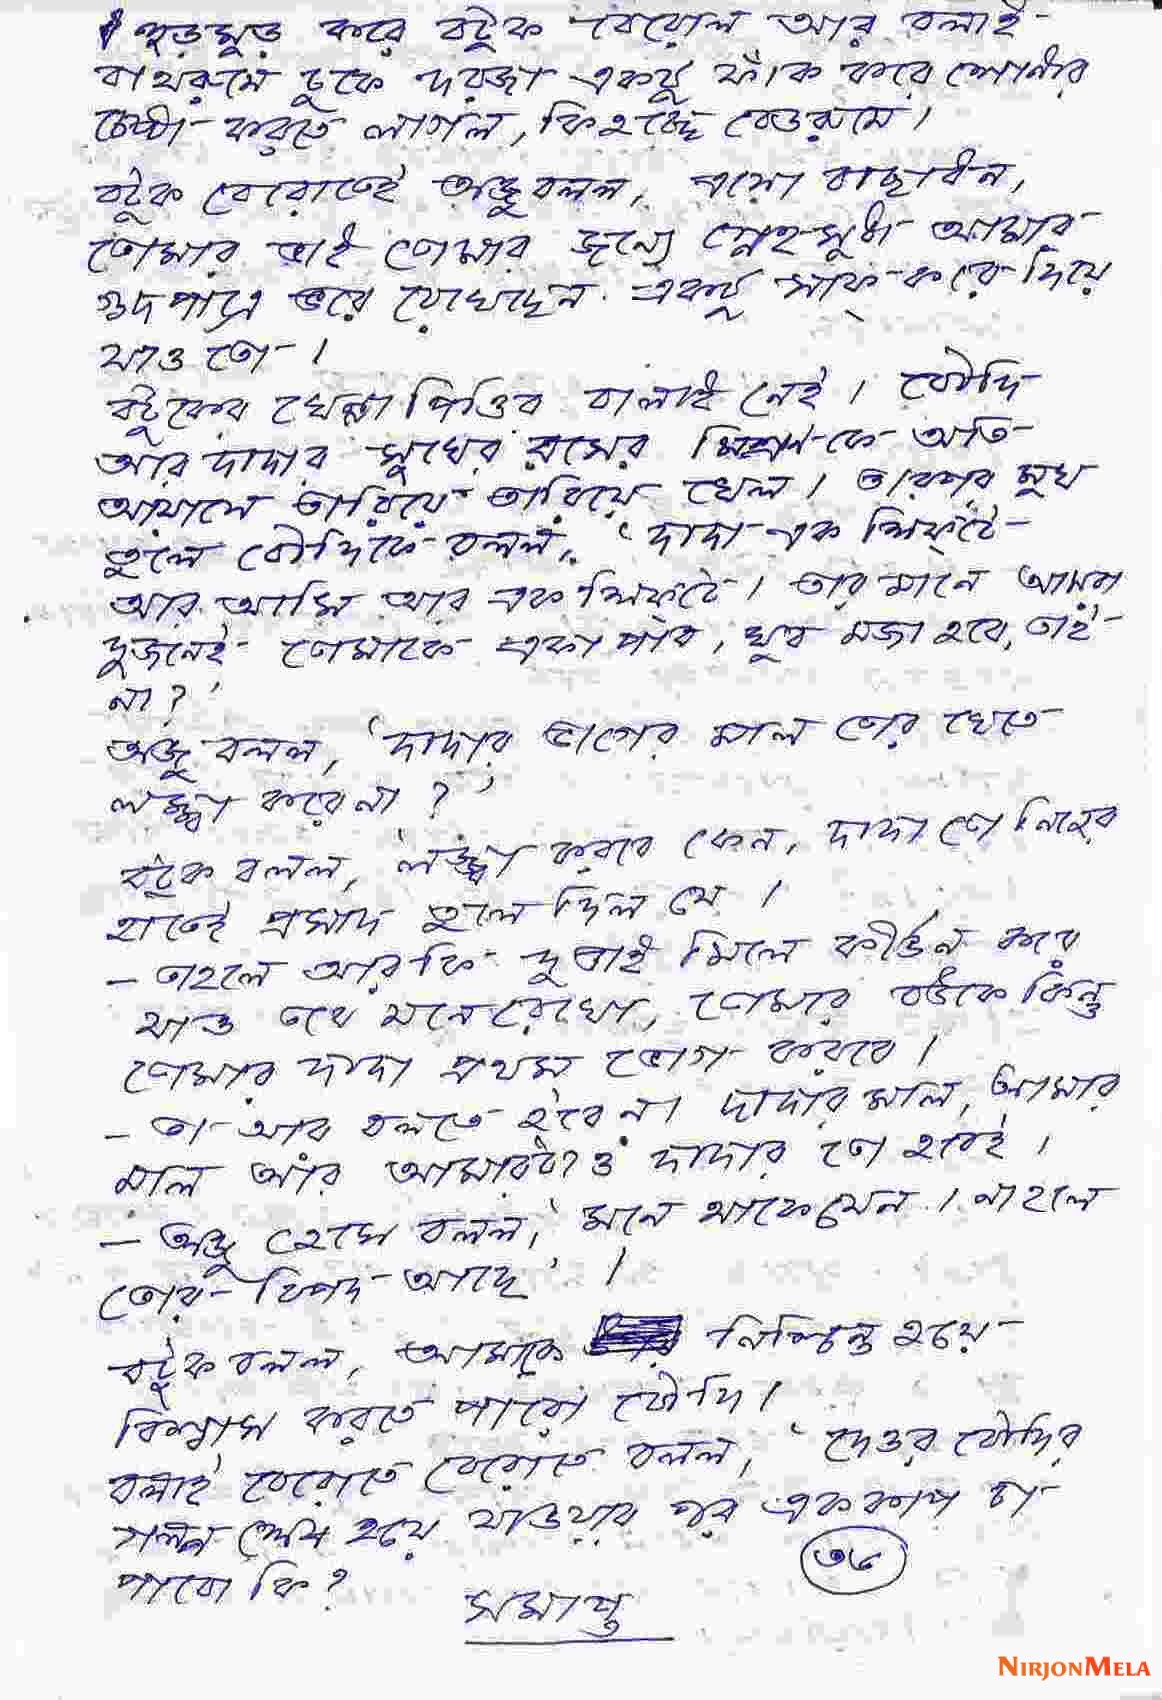 হুড়মুড় করে বটুক বেরোল আর বলাই
বাথরুমে ঢুকে দরজা একটু ফাঁক করে শোনার
চেষ্টা করতে লাগল, কি হচ্ছে বেডরুমে।
বটুক বেরোতেই অঞ্জু বলল, এসো বাছাধন,
তোমার ভাই তোমার জন্যে স্নেহসুধা আমার
গুদপাত্রে ভরে রেখেছেন একটু সাফ করে দিয়ে
যাও তো।
বটুকের ঘেন্না পিত্তির বালাই নেই। বৌদি
আর দাদার সুখের রসের মিশ্রণকে অতি
আয়াসে তারিয়ে তারিয়ে খেল। তারপর মুখ
তুলে বৌদিকে বলল, 'দাদা এক শিফ্টে
আর আমি আর এক শিফটে। তার মানে আমরা
দুজনেই তোমাকে একা পাব, খুব মজা হবে, তাই
না?'
অঞ্জু বলল, 'দাদার ভাগের মাল তোর খেতে
লজ্জা করেনা?'
বটুক বলল, 'লজ্জা করবে কেন, দাদা তো নিজের
হাতেই প্রসাদ তুলে দিল যে।
- তাহলে আর কি দুভাই মিলে কীর্ত্তন করে
যাও তবে মনে রেখো, তোমার বউকে কিন্তু
তোমার দাদা প্রথম ভোগ করবে।
- তা আর বলতে হবে না। দাদার মাল, আমার
মাল আর আমারটাও দাদার তো হবেই।
- অঞ্জু হেসে বলল, 'মনে থাকে যেন। না হলে
তোর বিপদ আছে'।
বটুক বলল, আমাকে নিশ্চিন্ত হয়ে
বিশ্বাস করতে পারো বৌদি।
বলাই বেরোতে বেরোতে বলল, 'দেওর বৌদির
গল্প শেষ হয়ে যাওয়ার পর এককাপ চা
পাবো কি?
৩৬
সমাপ্ত
NIRJONMELA